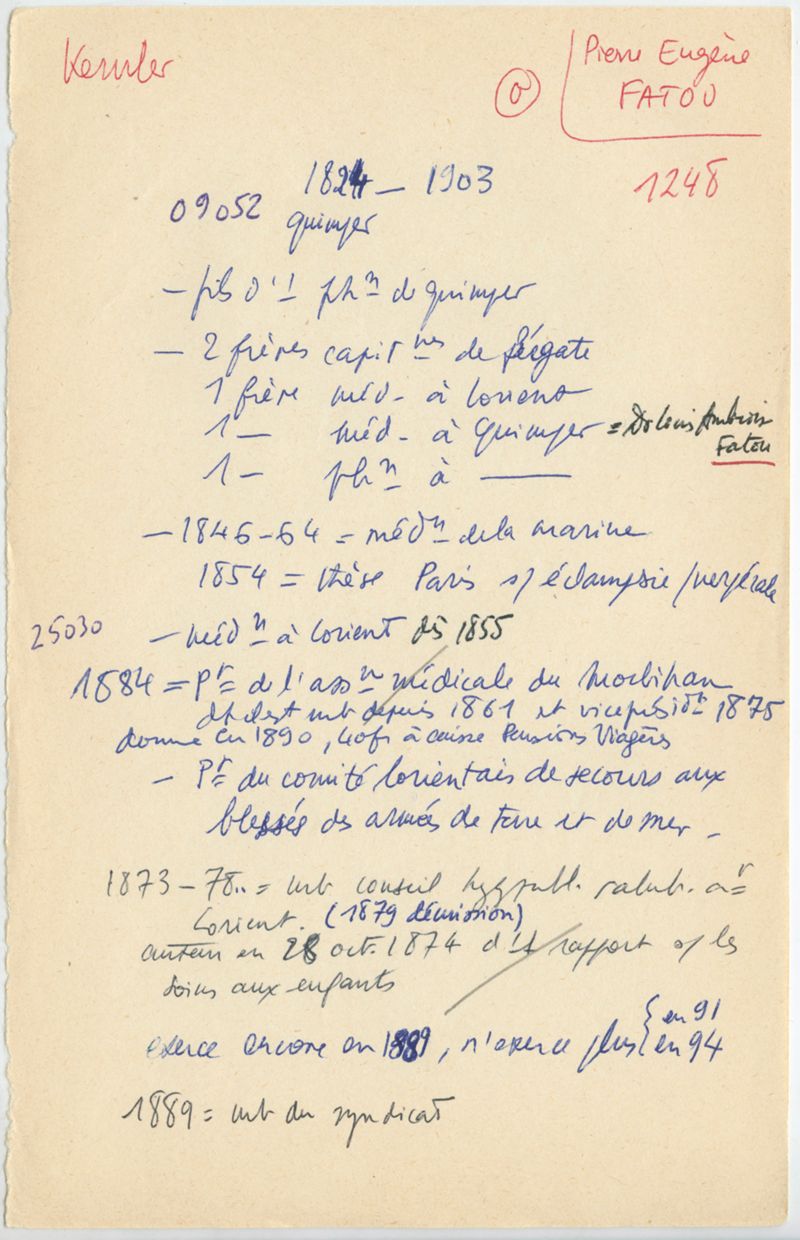 Kernler
(0)
Pierre Eugène
FATOU
1248
1824 – 1903
09052 quimper
– fils d'1 phn de quimper
– 2 frères capitnes de frégate
1 frère méd. à Lorient
1 – méd. à Quimper = Dr Louis Ambrois Fatou
1 – phn à ———
– 1846-64 = médn de la marine
1854 = thèse Paris s/ éclampsie puerpérale
25030 – médn à Lorient dès 1855
1884 = Pr de l'assn médicale du Morbihan
dt il est mb depuis 1861 et viceprésidt 1875
donne en 1890, 40fr à caisse Pensions Viagères
– Pr du comité lorientais de secours aux
blessés des armées de terre et de mer –
1873 – 78.. = mb conseil hyg publ. salub. ar
Lorient. (1879 démission)
auteur en 28 oct. 1874 d'1 rapport s/ les
soins aux enfants
exerce encore en 1889, n'exerce plus { en 91
{ en 94
1889 = mb du syndicat